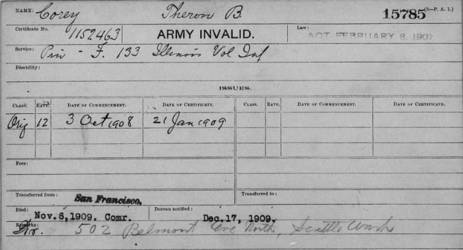 NAME: Corey Theron B. 15785 (3—P. A. I.)
Certificate No. 1152463 ARMY INVALID. Law: ACT FEBRUARY 6, 1907
Service: Priv - F. 133 Illinois Vol Inf
Disability:
ISSUE.
CLASS. RATE. DATE OF COMMENCEMENT. DATE OF CERTIFICATE. CLASS. RATE. DATE OF COMMENCEMENT. DATE OF CERTIFICATE.
Orig 12 3 Oct 1908 21 Jan 1909
Fees:
Transferred from: San Francisco. Transferred to:
Died: Nov. 6, 1909. Comr. Bureau notified: Dec. 17, 1909.
Remarks: 502 Belmont Ave North, Seattle Wash